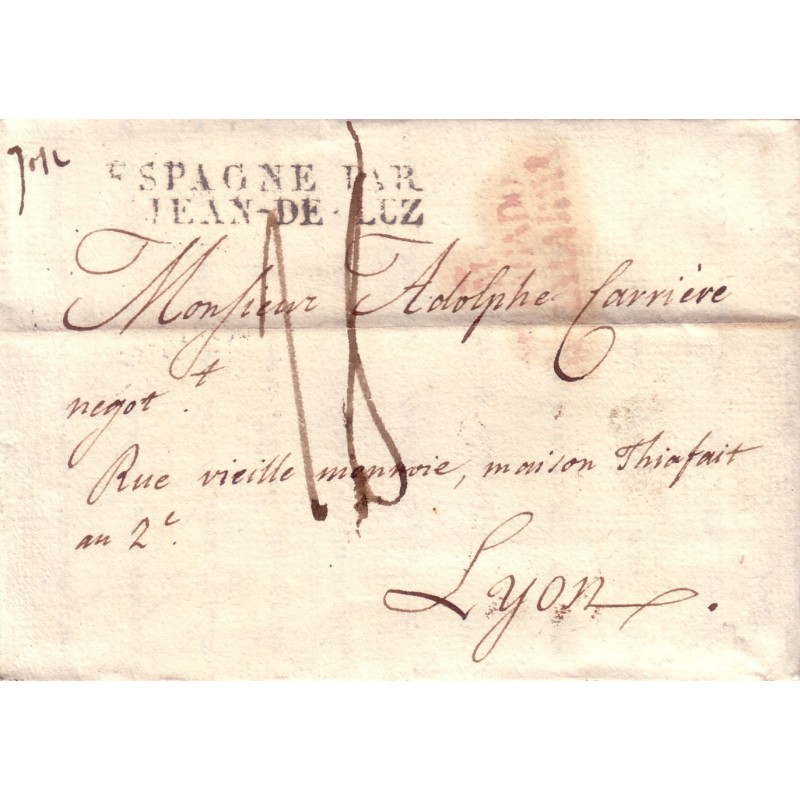 ESPAGNE PAR
JEAN-DE-LUZ
Monsieur Adolphe Carrière
negot.t
Rue vieille monnoie, maison Thiafait
au 2e.
Lyon.